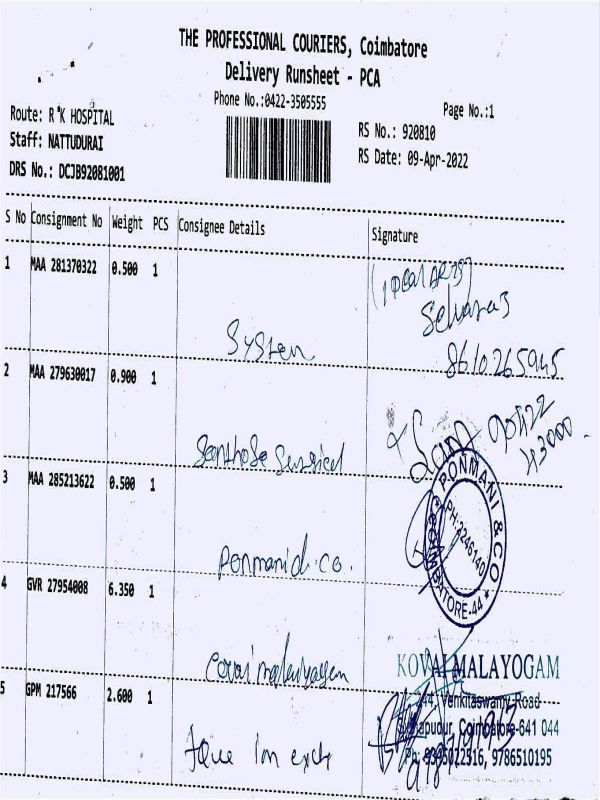 THE PROFESSIONAL COURIERS, Coimbatore
Delivery Runsheet - PCA
Phone No.:0422-3505555
Page No.:1
Route: R K HOSPITAL
RS No.: 920810
Staff: NATTUDURAI
RS Date: 09-Apr-2022
DRS No.: DCJB92081001
S No Consignment No Weight PCS Consignee Details Signature
1 MAA 281370322 0.500 1
System
8610265945
2 MAA 279630017 0.900 1
Santhose Surgical
3 MAA 285213622 0.500 1
PONMANI & CO
PH:2246140
COIMBATORE-44
Ponmani & co.
4 GVR 27954008 6.350 1
Covai malaiyogam
KOVAI MALAYOGAM
244, Venkitaswamy Road
Coimbatore-641 044
9786510195
5 GPM 217566 2.600 1